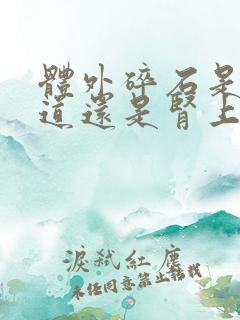 體外碎石是
道還是腎上
淚弑紅塵
未经同意禁止轉載